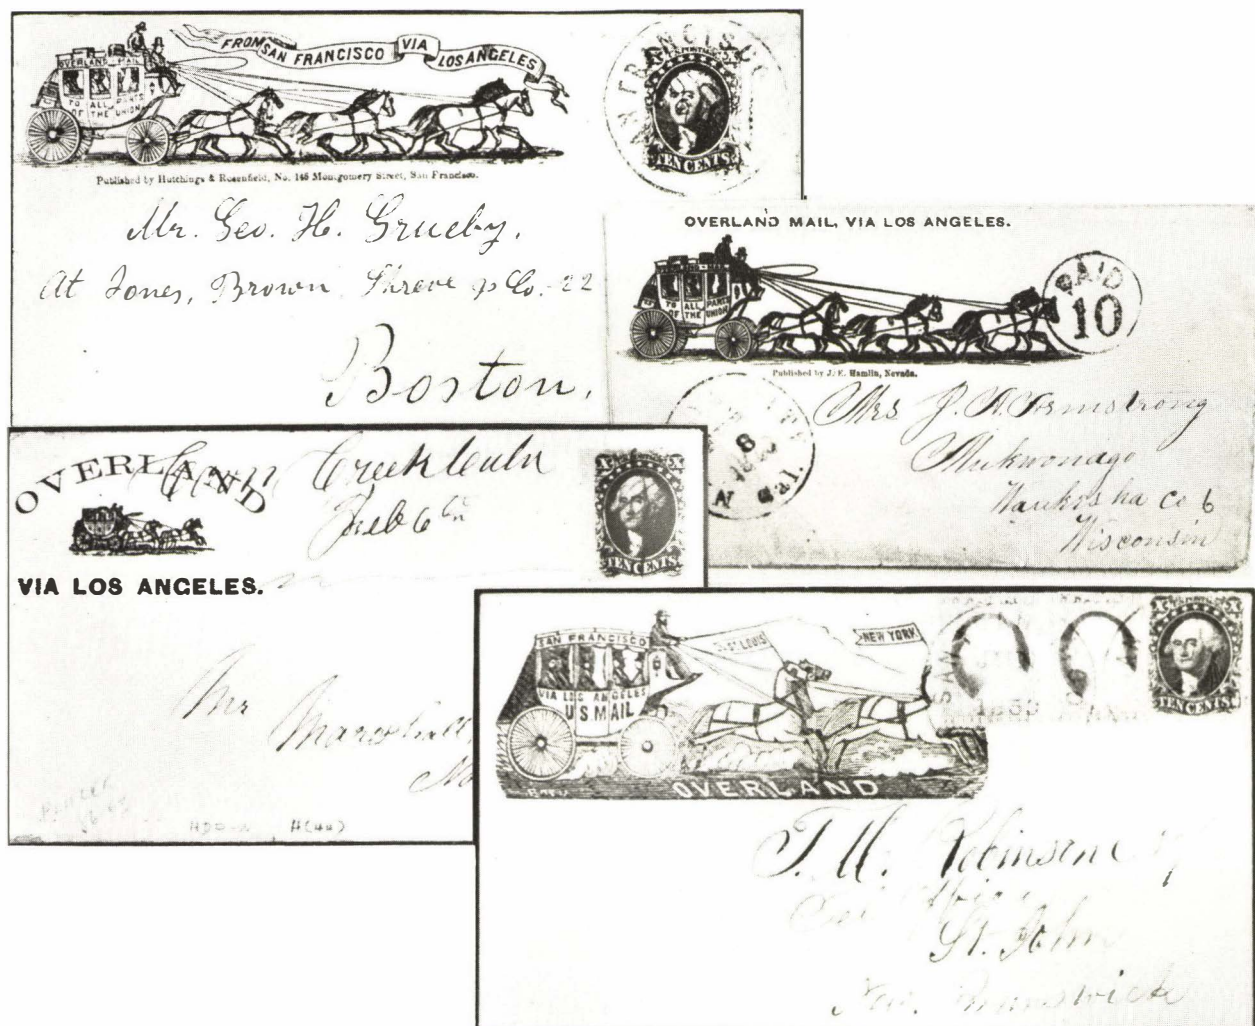 FROM SAN FRANCISCO VIA LOS ANGELES
OVERLAND MAIL
TO ALL PARTS
OF THE UNION
AN FRANCISCO
TEN CENTS
Published by Hutchings & Rosenfield, No. 146 Montgomery Street, San Francisco.
Mr. Geo. H. Grueby,
At Jones, Brown, Shreve & Co. 22
Boston,
OVERLAND MAIL, VIA LOS ANGELES.
TO ALL PARTS
OF THE UNION
PAID
10
Published by J. E. Hamlin, Nevada.
8
Cal.
Mrs J. A. Armstrong
Mukwonago
Waukesha Co 6
Wisconsin
OVERLAND
Creek
6th
VIA LOS ANGELES.
TEN CENTS
Mr Marshall
SAN FRANCISCO
VIA LOS ANGELES
U S MAIL
ST. LOUIS
NEW YORK
OVERLAND
SAN
TEN CENTS
Robinson
St. John
New Brunswick